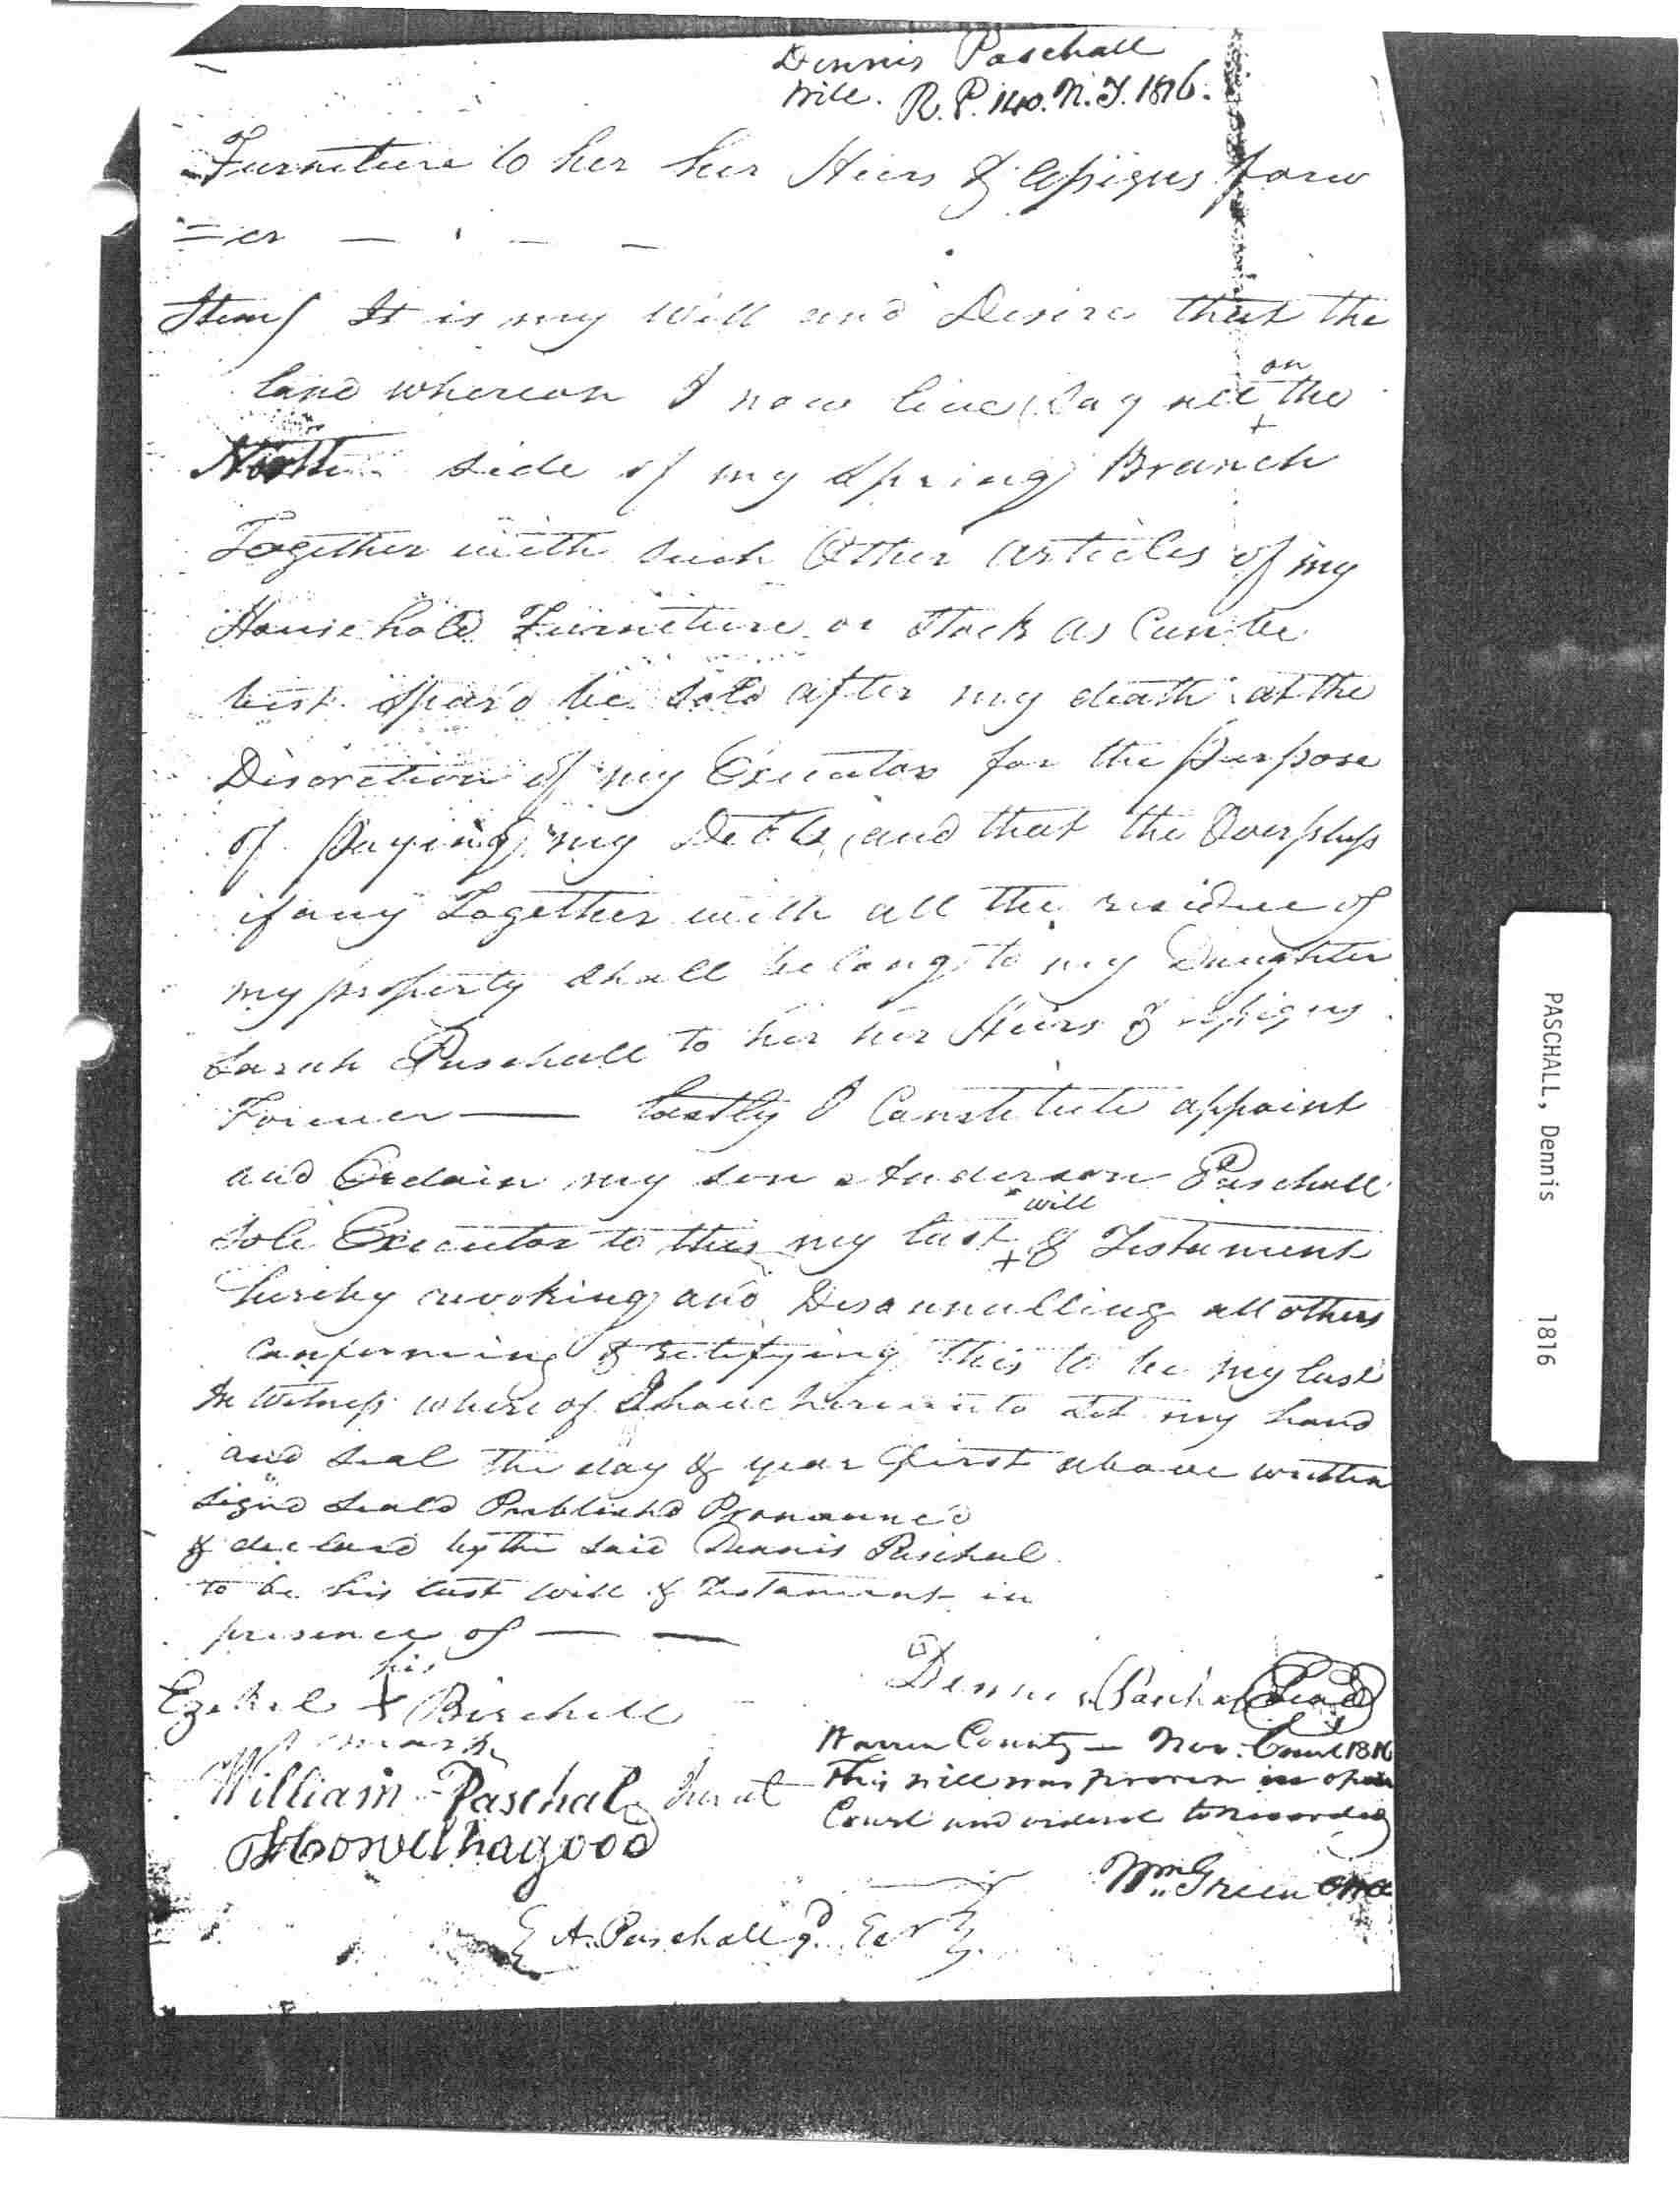 Dennis Paschall
Will. R. P. 140. N. T. 1816.
Furniture to her her Heirs & assigns forev
=er — — —
Item/ It is my Will and Desire that the
on
land whereon I now live (Say all the
North side of my Spring Branch
Together with such Other articles of my
Household Furniture or Stock as Can be
best spar'd be sold after my death at the
Discretion of my Executor for the Purpose
of Paying my Debts, and that the Overplus
if any Together with all the residue of
my property shall belong to my Daughter
Sarah Paschall to her her Heirs & assigns
Forever — Lastly I Constitute appoint
and Ordain my son Anderson Paschall
will
Sole Executor to this my last & Testament
hereby revoking and Disannulling all others
Confirming & ratifying this to be my last
In Witness where of I have hereunto Set my hand
and Seal the day & year first above written
Signd Seald Publish'd Pronounc'd
& declared by the said Dennis Paschal
to be his last Will & Testament in
presence of — —
his
Ezekel + Birchell
mark
Dennis Paschal Seal
William Paschal Jurat
Howell hagood
Warren County — Nov. Court 1816
This will was proven in open
Court and ordered to be recorded
Wm. Green CWC
A. Paschall qd. Exr
PASCHALL, Dennis 1816